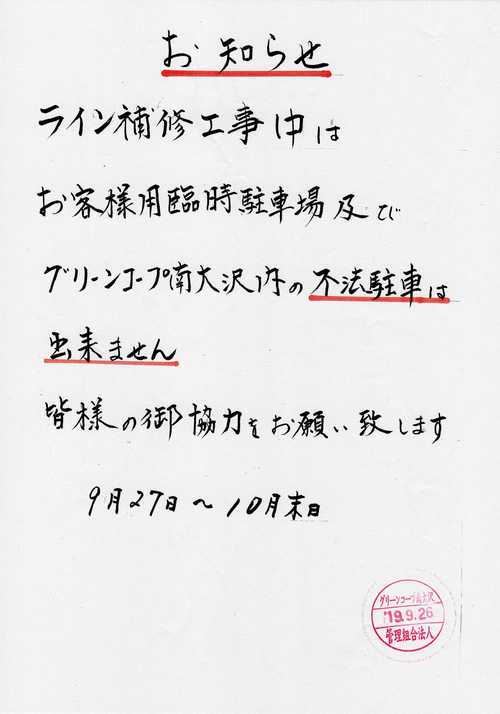 お知らせ
ライン補修工事中は
お客様用臨時駐車場及び
グリーンコープ南大沢内の不法駐車は
出来ません
皆様の御協力をお願い致します
9月27日〜10月末日
グリーンコープ南大沢
'19.9.26
管理組合法人